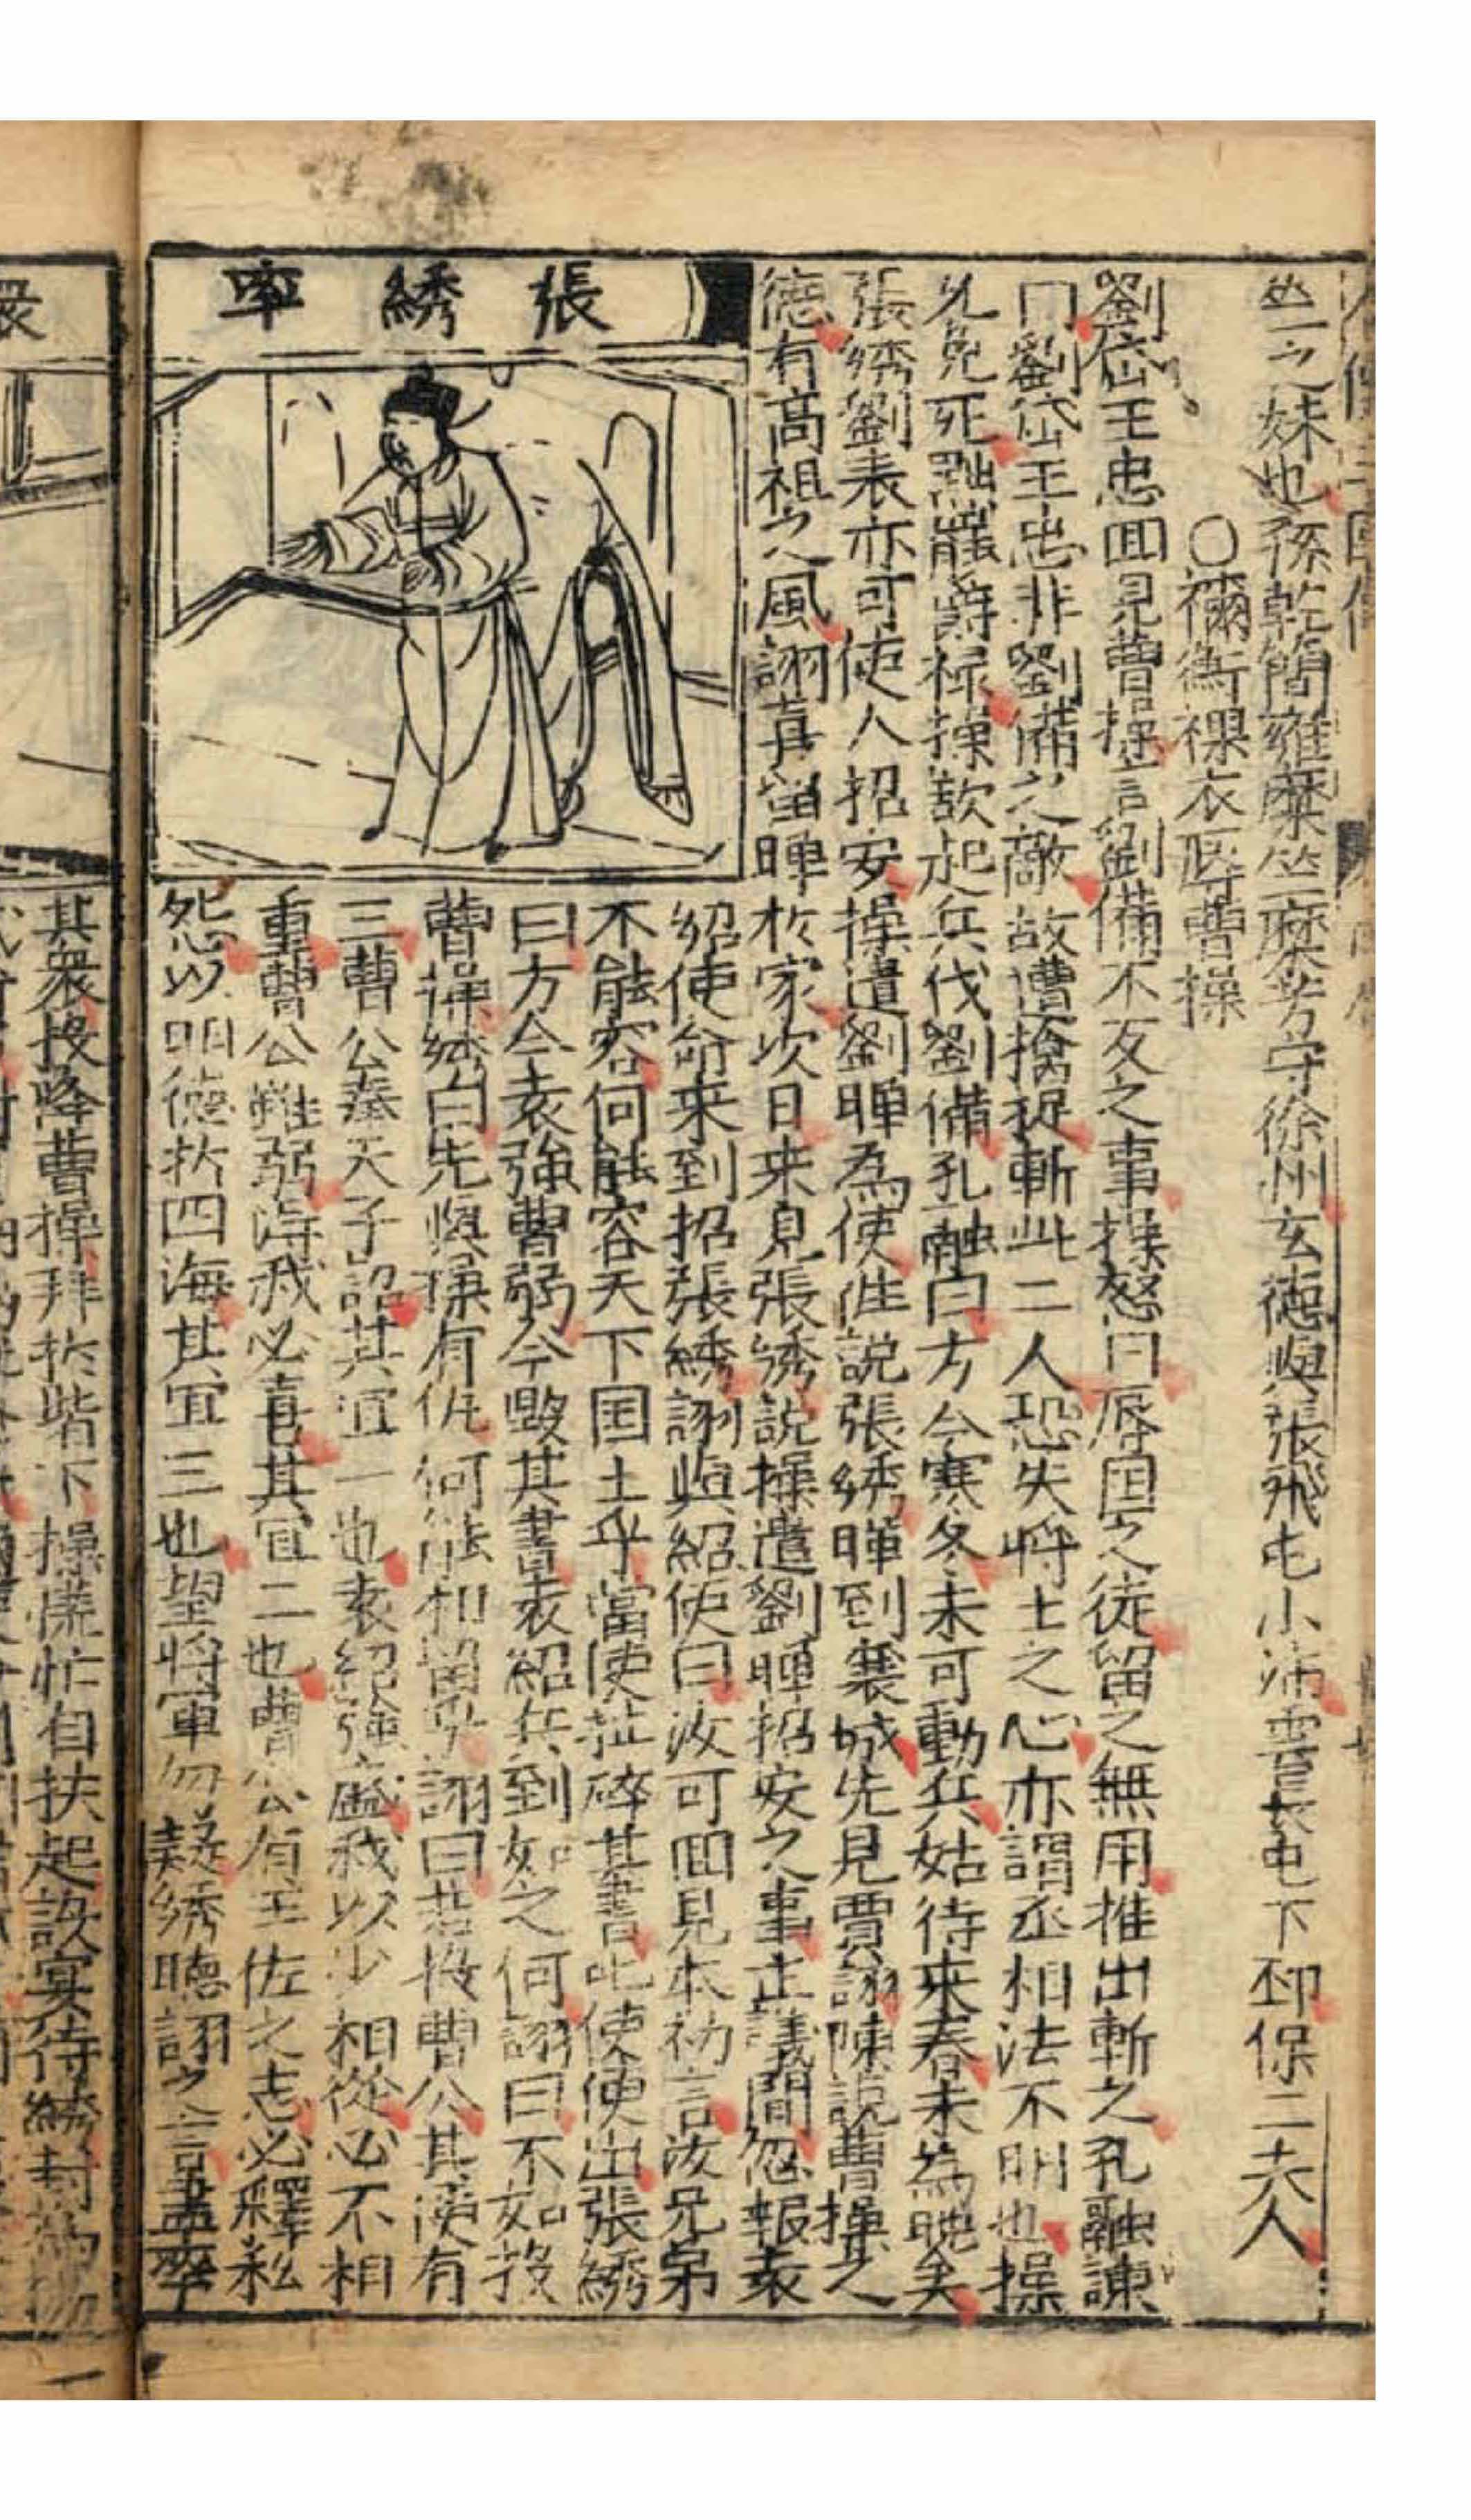 竺之妹也孫乾簡雍糜竺糜芳守徐州玄德與張飛屯小沛雲長屯下邳保二夫人
○禰衡裸衣辱曹操
劉岱王忠回見曹操言劉備不反之事操怒曰辱国之徒留之無用推出斬之孔融諫
曰劉岱王忠非劉備之敵故遭擒捉斬此二人恐失将士之心亦謂丞相法不明也操
乃免死黜罷爵禄操欲起兵伐劉備孔融曰方今寒冬未可動兵姑待来春未為晚矣
張綉劉表亦可使人招安操遣劉曄為使徃説張綉曄到襄城先見賈詡陳説曹操之
德有高祖之風詡喜留曄於家次日来見張綉説操遣劉曄招安之事正議間忽報袁
紹使命来到招張綉詡與紹使曰汝可回見本初言汝兄弟
不能容何能容天下国士乎當使扯碎其書叱使便出張綉
曰方今袁強曹弱今毀其書袁紹兵到如之何詡曰不如投
曹操綉曰先與操有仇何能相留乎詡曰若投曹公其便有
三曹公奉天子詔其宜一也袁紹強盛我以少相從必不相
重曹公雖弱得我必喜其宜二也曹公有王佐之志必釋私
怨以明德於四海其宜三也望将軍勿疑綉聴詡之言盡率
張綉率
其衆投降曹操拜於堦下操慌忙自扶起設宴待綉封為
衆